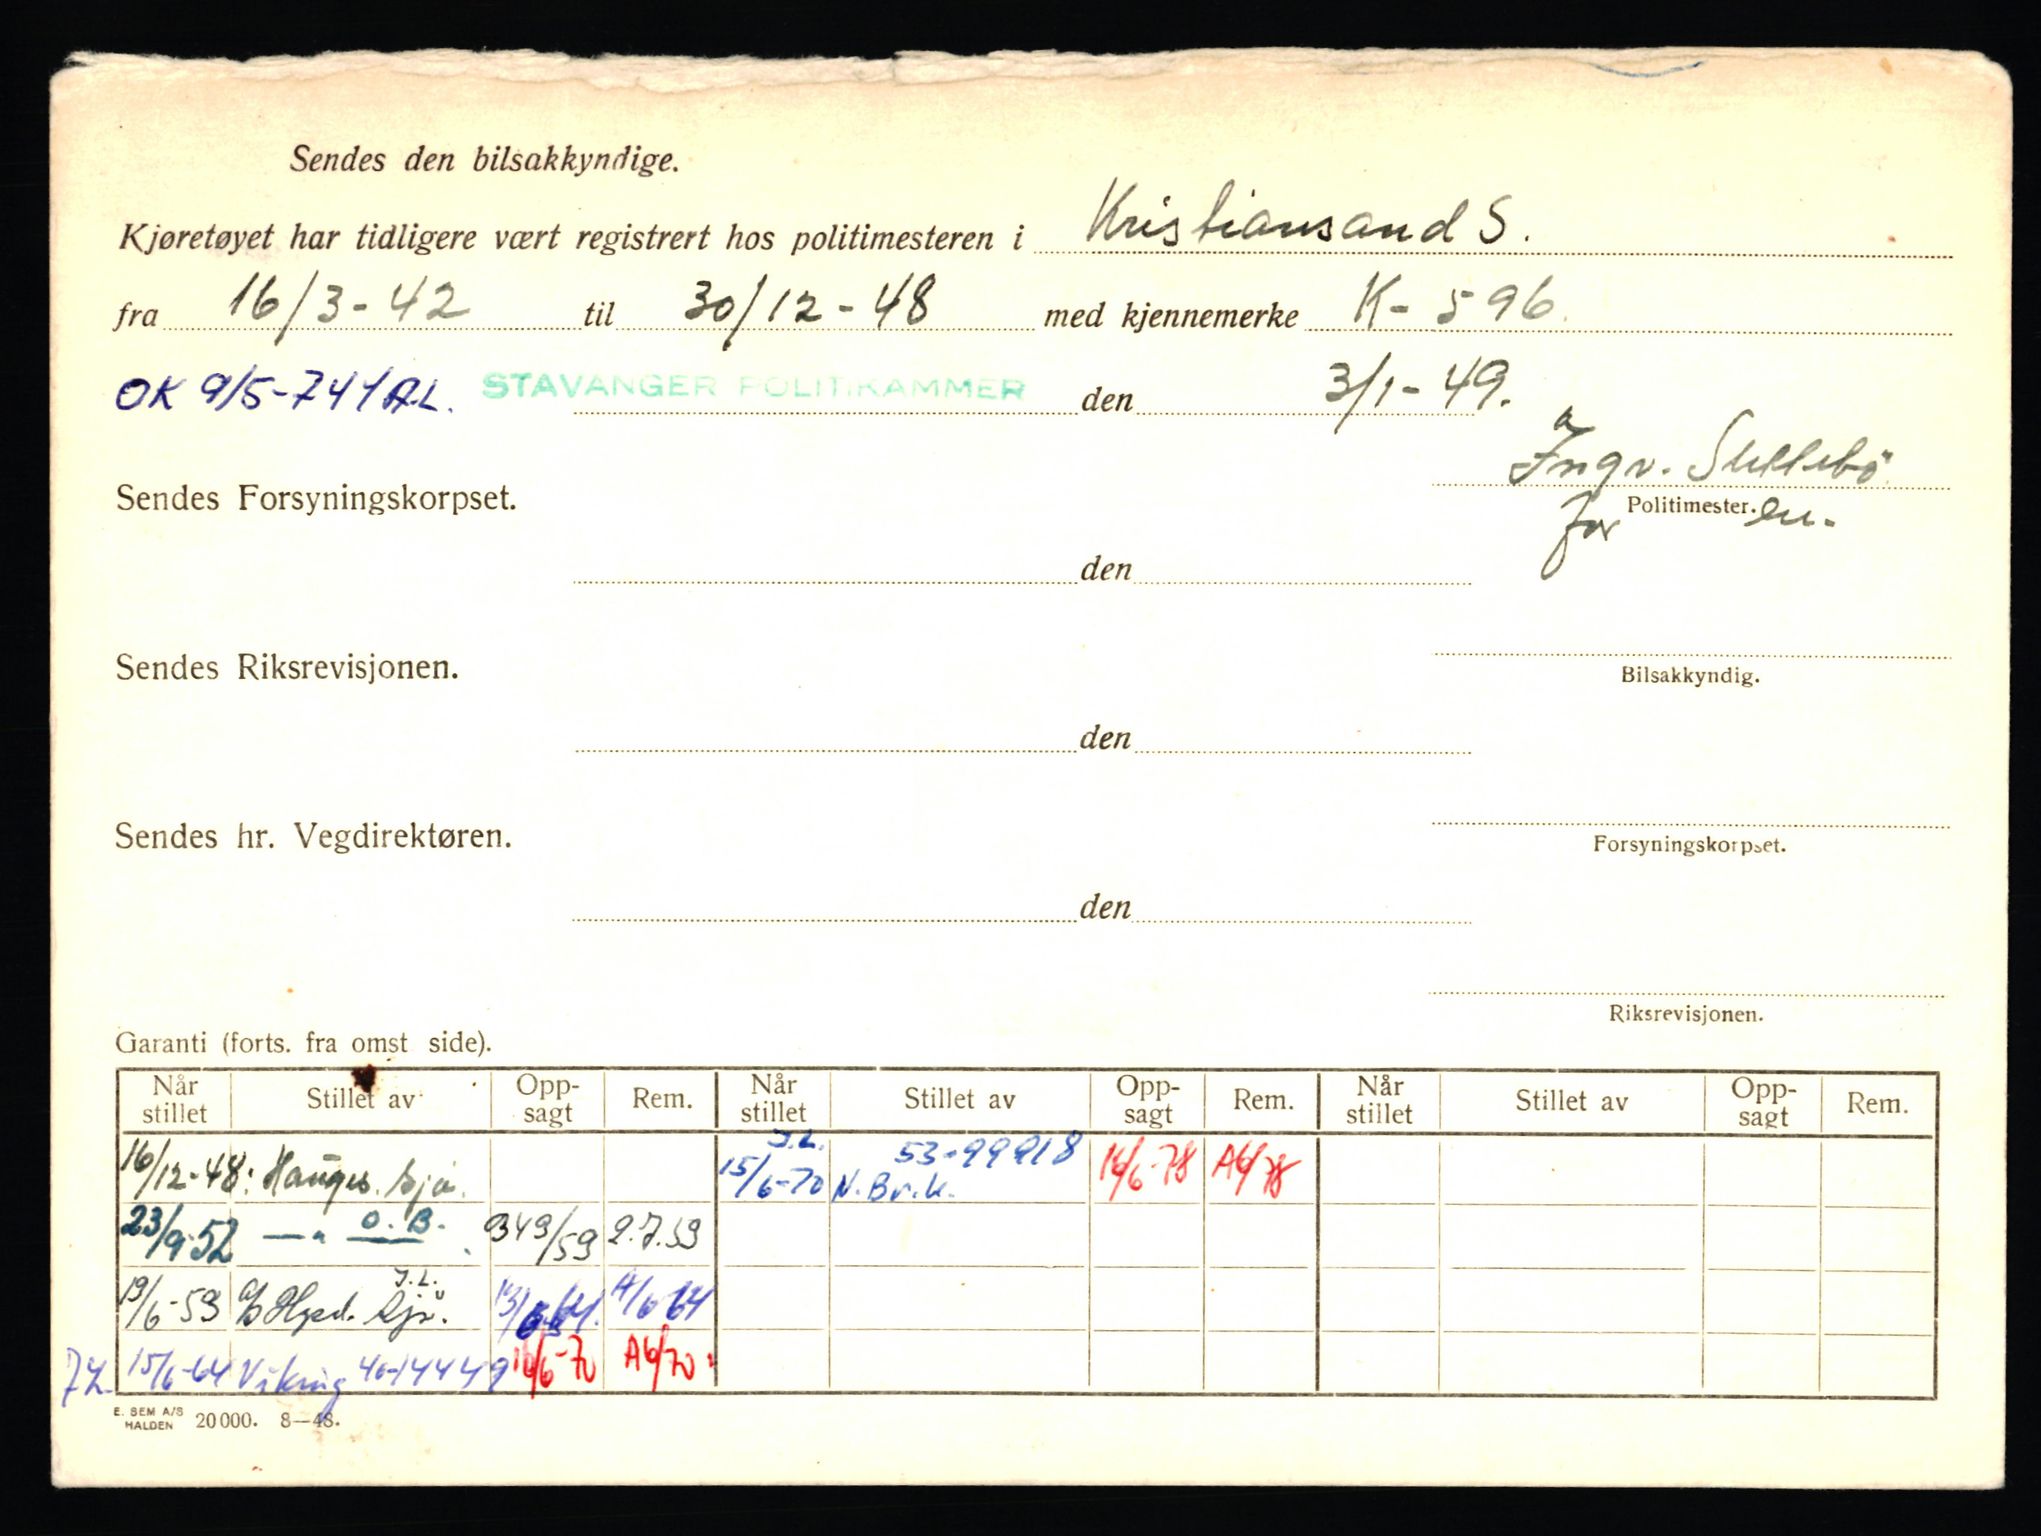 Sendes den bilsakkyndige.
Kjøretøyet har tidligere vært registrert hos politimesteren i Kristiansand S.
fra 16/3-42 til 30/12-48 med kjennemerke K-596
OK 9/5-74 STAVANGER POLITIKAMMER den 3/1-49.
Ingv.
Sendes Forsyningskorpset.
for Politimester.en.
den
Sendes Riksrevisjonen.
Bilsakkyndig.
den
Sendes hr. Vegdirektøren.
Forsyningskorpset.
den
Riksrevisjonen.
Garanti (forts. fra omst side).
Når stillet Stillet av Opp-sagt Rem. Når stillet Stillet av Opp-sagt Rem. Når stillet Stillet av Opp-sagt Rem.
16/12-48: Hauges. Sjø. 15/6-70 J.L. N.Br.k. 53-99918 16/6-78 A6/78
23/9-52 —"— O.B. 349/59 2.7.59
19/6-59 J.L. Sjø.
7L. 15/6-64 Viking 40-14449 16/6-70 A6/70
E. SEM A/S
HALDEN 20000. 8—48.